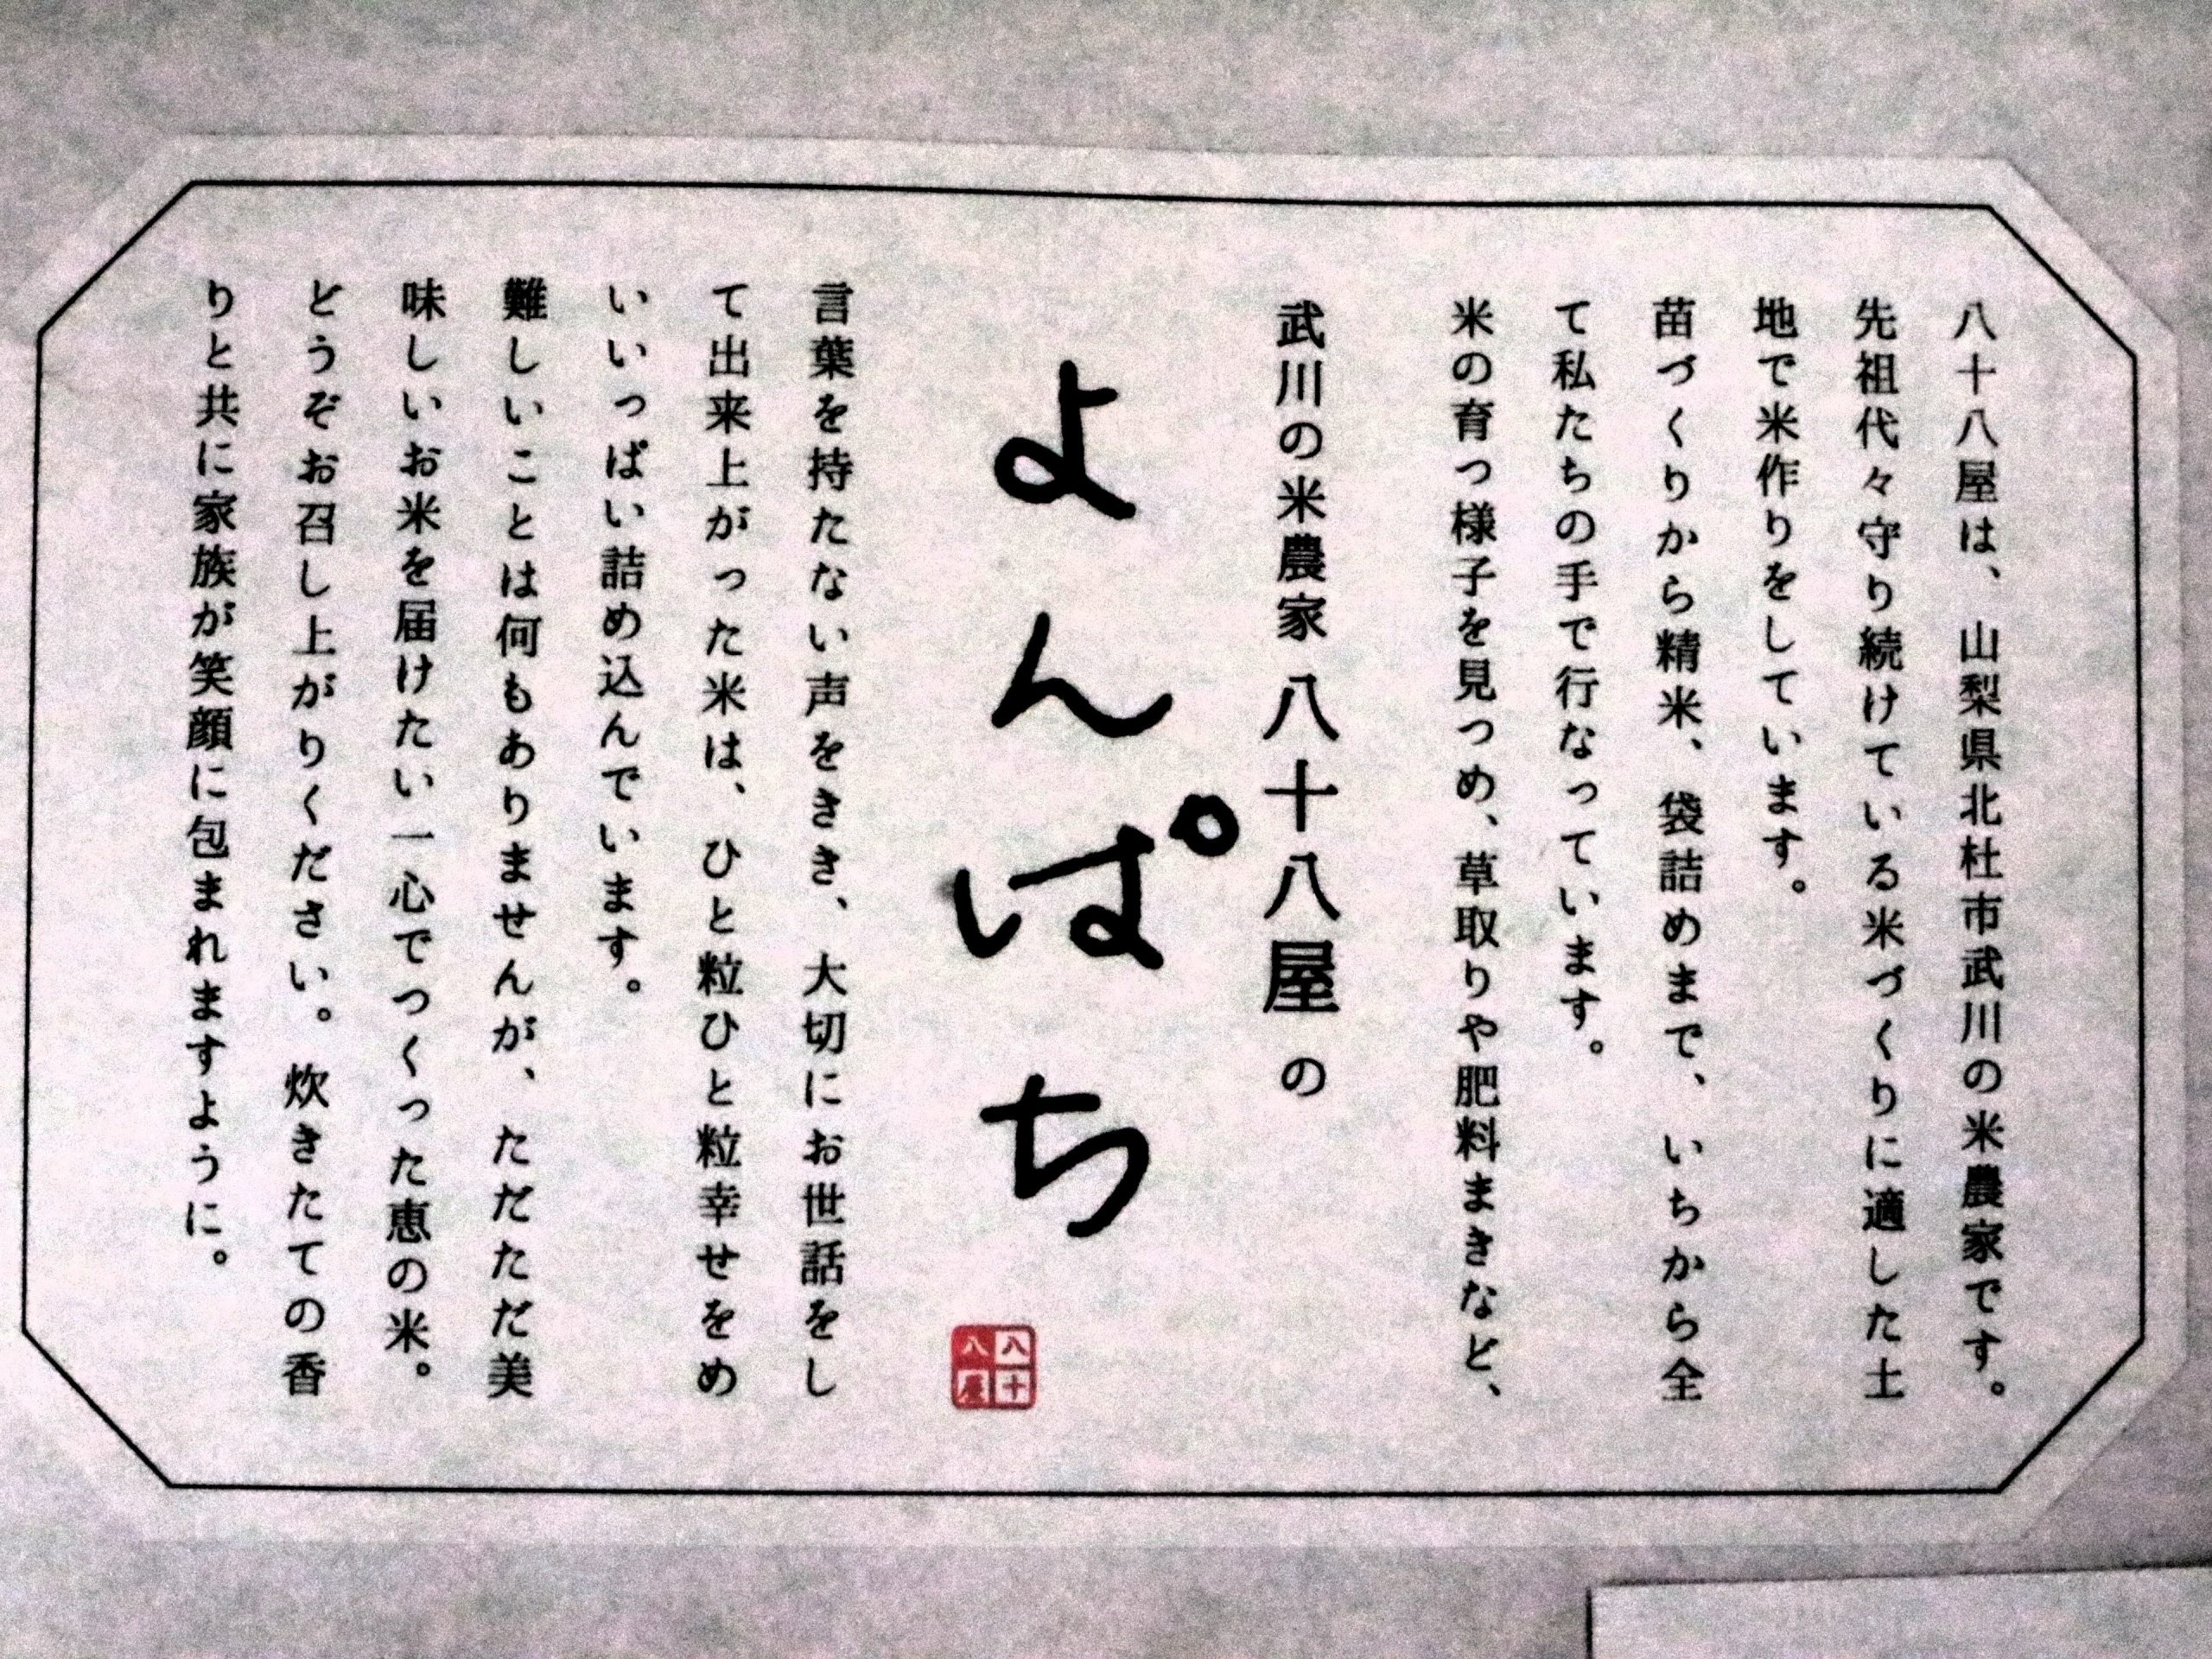 八十八屋は、山梨県北杜市武川の米農家です。
先祖代々守り続けている米づくりに適した土
地で米作りをしています。
苗づくりから精米、袋詰めまで、いちから全
て私たちの手で行なっています。
米の育つ様子を見つめ、草取りや肥料まきなど、
武川の米農家 八十八屋 の
よんぱち
八十
八屋
言葉を持たない声をきき、大切にお世話をし
て出来上がった米は、ひと粒ひと粒幸せをめ
いいっぱい詰め込んでいます。
難しいことは何もありませんが、ただただ美
味しいお米を届けたい一心でつくった恵の米。
どうぞお召し上がりください。炊きたての香
りと共に家族が笑顔に包まれますように。